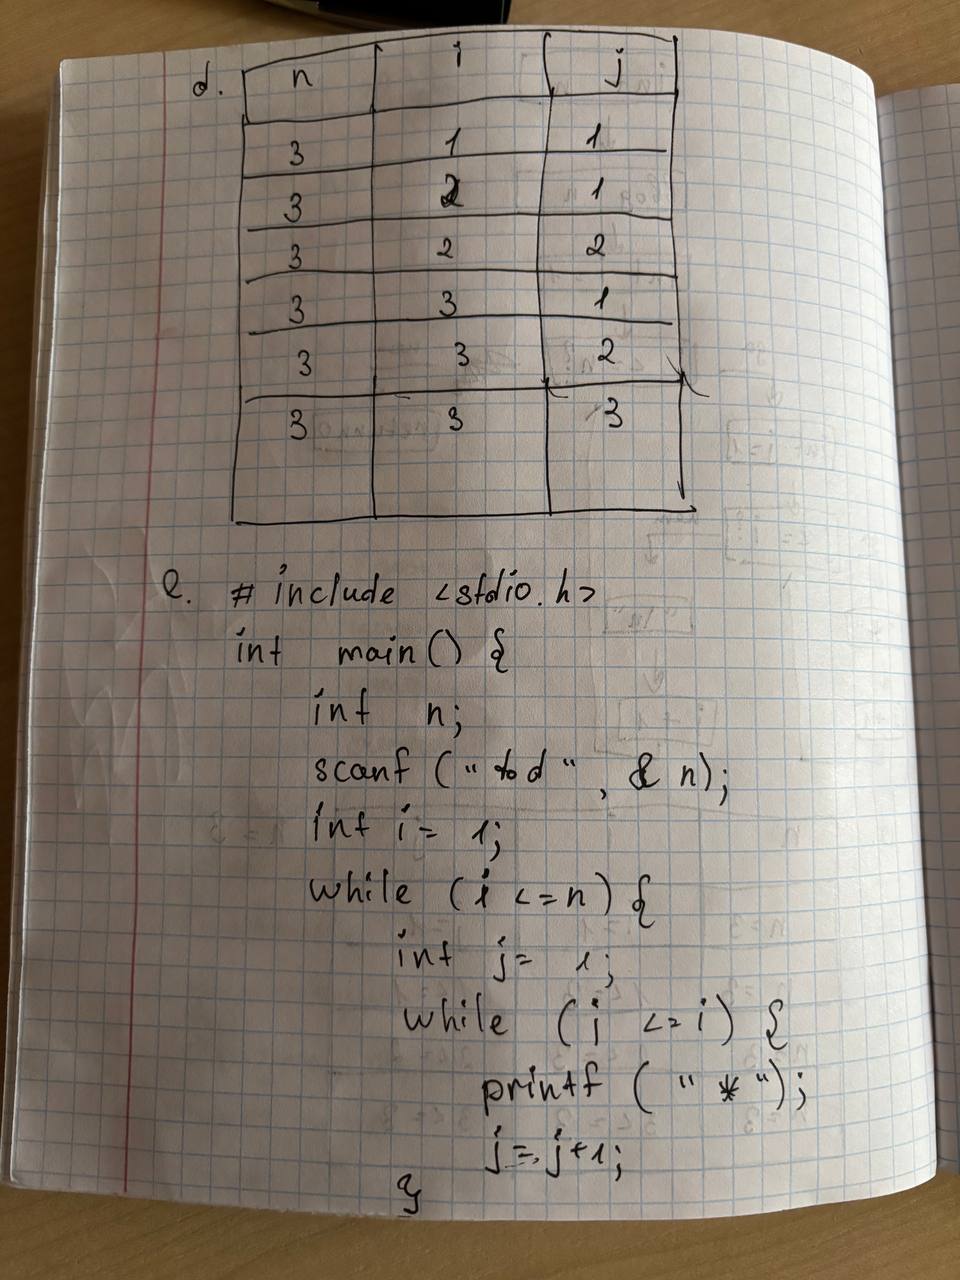 d. n i j
3 1 1
3 2 1
3 2 2
3 3 1
3 3 2
3 3 3
e. # include <stdio.h>
int main() {
int n;
scanf ("%d", & n);
int i = 1;
while (i <= n) {
int j = 1;
while (j <= i) {
printf ("*");
j = j+1;
}